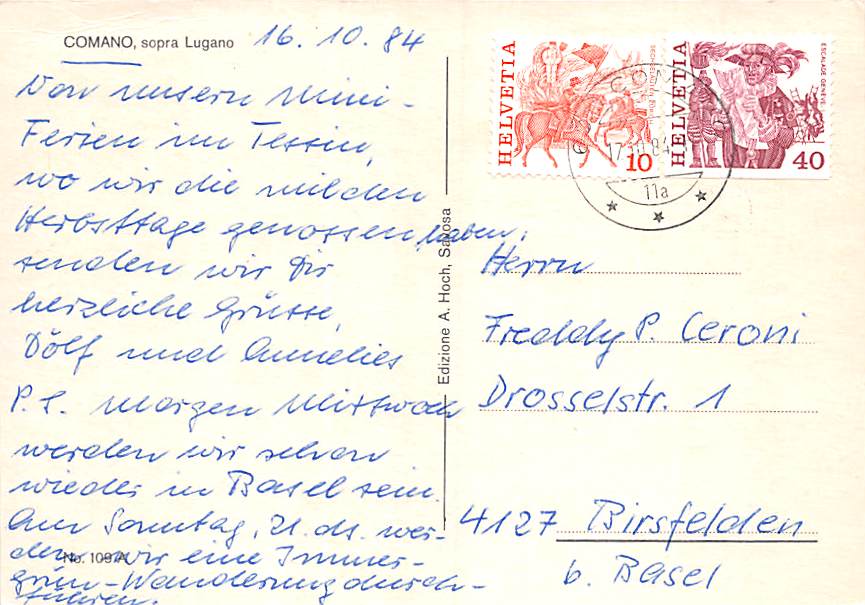 COMANO, sopra Lugano
16. 10. 84
Von unsern Mini-
Ferien im Tessin,
wo wir die milden
Herbsttage genossen haben,
senden wir Dir
herzliche Grüsse,
Dölf und Annelies
P.S. Morgen Mittwoch
werden wir schon
wieder in Basel sein.
Am Sonntag, 21. ds. wer-
den wir eine Immer-
grün-Wanderung durch-
führen.
No. 1097A
Edizione A. Hoch, Savosa
HELVETIA
10
HELVETIA
ESCALADE GENÈVE
40
17.10.84
11a
Herrn
Freddy P. Ceroni
Drosselstr. 1
4127 Birsfelden
b. Basel